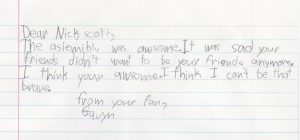 Dear Nick scott,
The aslembly was awsome. It was sad your
friends didn't want to be your friends anymore.
I think your awsome. I think I can't be that
brave.
from your fan,